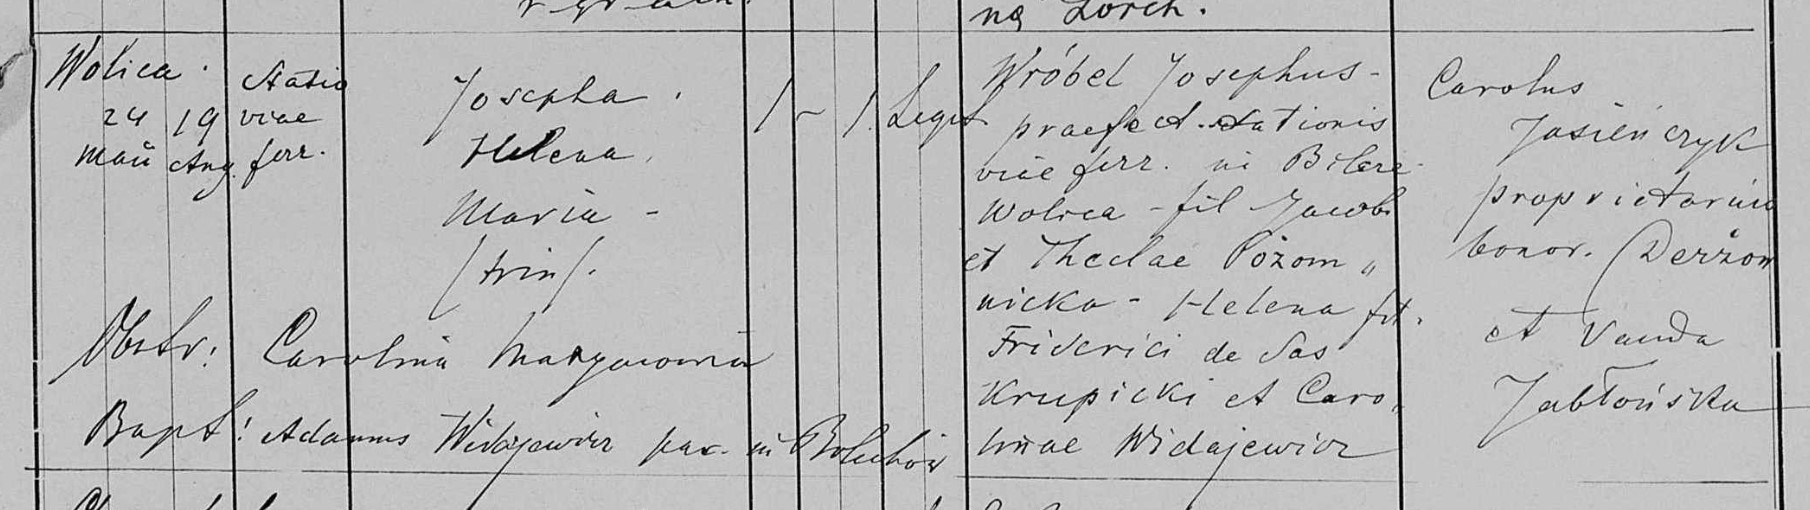 ną Lorch.
Wolica.
24 19
Maii Aug.
Statio
viae
ferr.
Josepha.
Helena.
Maria -
(trin).
1 - 1. Legit
Wróbel Josephus -
praefect. Stationis
viae ferr. in Bolere
Wolica - fil Jacobi
et Theclae Pożom„
nicka - Helena fil.
Friderici de Sas
Krupicki et Caro„
linae Widajewicz
Carolus
Jasieńczyk
proprietarius
bonor. (Derżow
et Vanda
Jabłońska
Obstr: Carolina
Bapt: Adamus Widajewicz par. in Bolechów